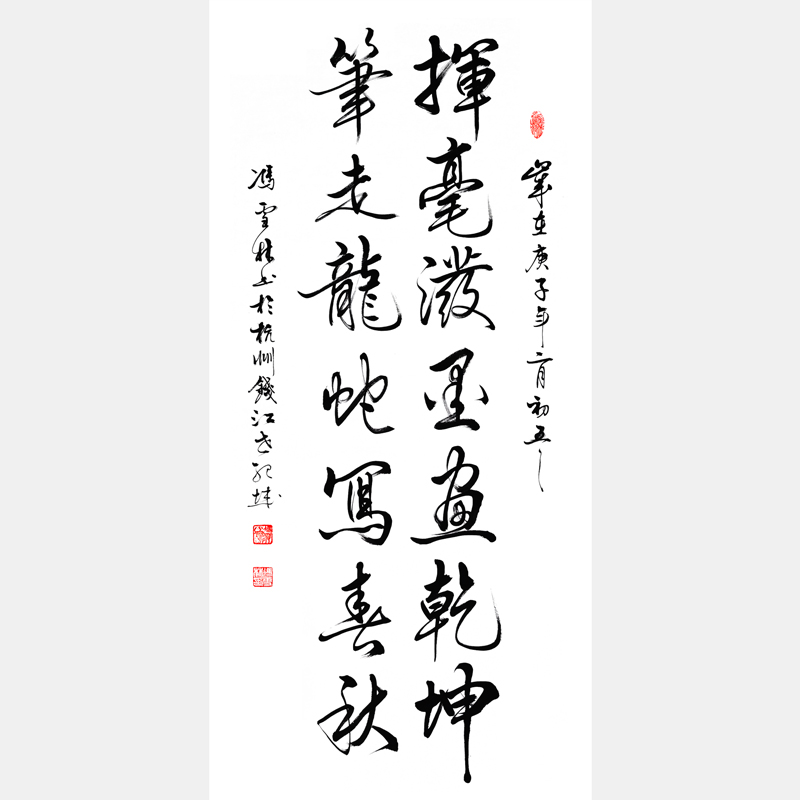 歲在庚子年二月初五
揮毫潑墨畫乾坤
筆走龍蛇寫春秋
馮雪林书於杭州錢江世紀城